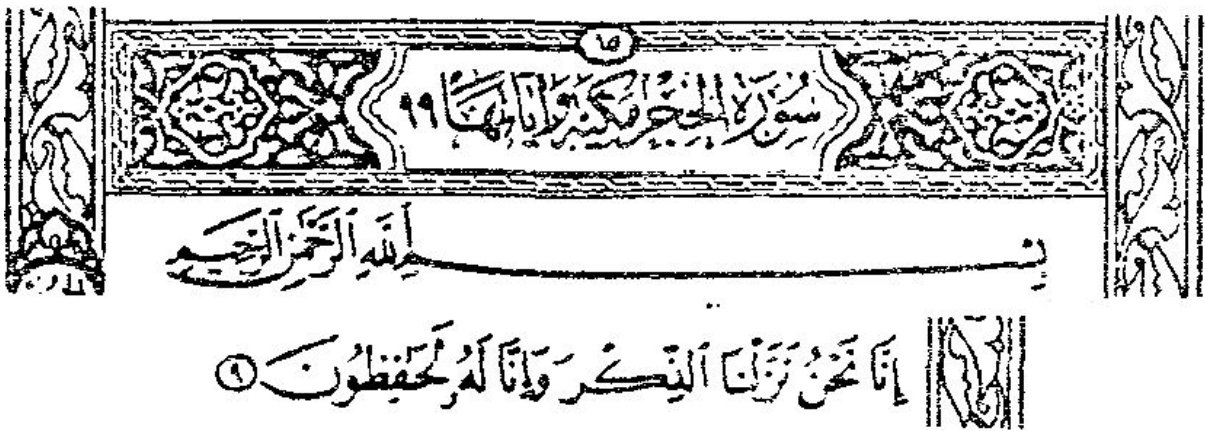 ١٥
سُورَةُ الحِجْرِ مَكِّيَّة وَآيَاتُهَا ٩٩
بِسْمِ اللَّهِ الرَّحْمَٰنِ الرَّحِيمِ
إِنَّا نَحْنُ نَزَّلْنَا ٱلذِّكْرَ وَإِنَّا لَهُۥ لَحَٰفِظُونَ ٩